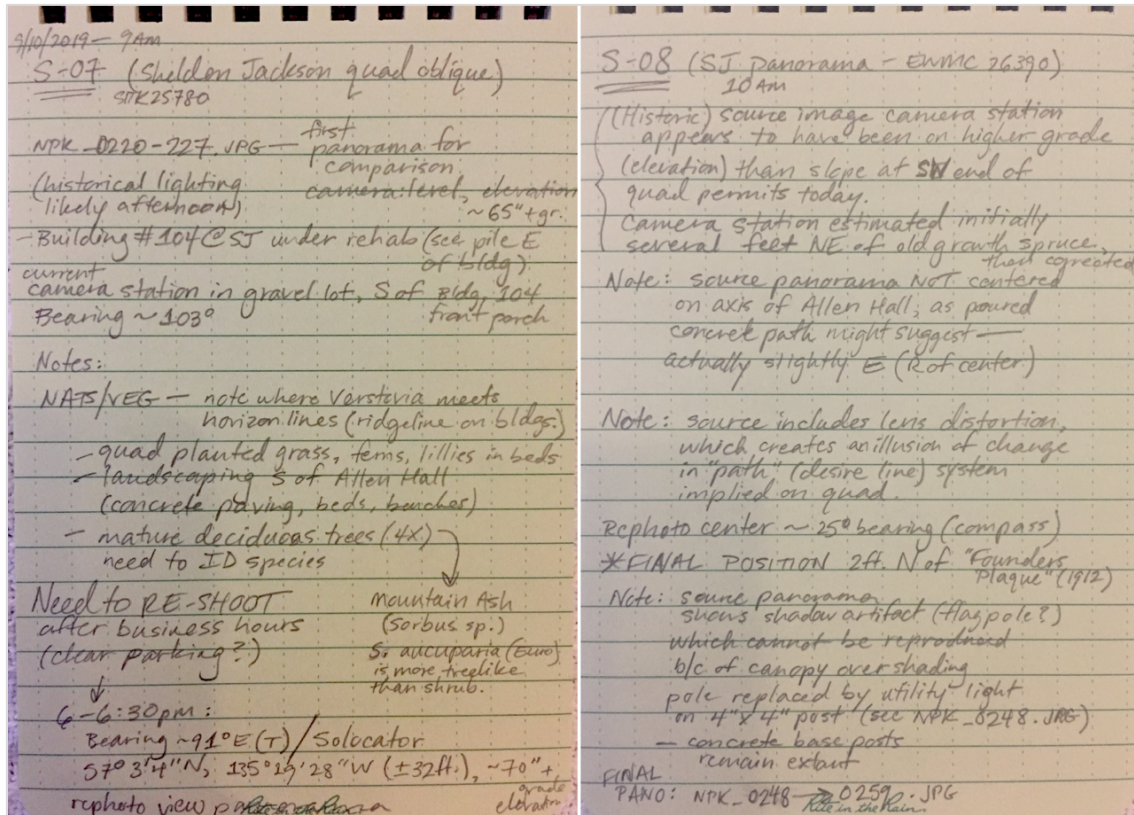 9/10/2019 — 9AM
S-07 (Sheldon Jackson quad oblique)
SITK25780
NPK_0220-227.JPG — first
panorama for
comparison.
(historical lighting
likely afternoon)
camera: level, elevation
~65"+gr.
- Building #104 @ SJ under rehab (see pile E
of bldg)
current
camera station in gravel lot, S of Bldg. 104
front porch
Bearing ~103°
Notes:
NATS/VEG — note where Verstovia meets
horizon lines (ridgeline on bldgs.)
- quad planted grass, ferns, lillies in beds
- landscaping S of Allen Hall
(concrete paving, beds, benches)
- mature deciduous trees (4x)
need to ID species
Need to RE-SHOOT
after business hours
(clear parking?)
mountain Ash
(Sorbus sp.)
S. aucuparia (Euro)
is more treelike
than shrub.
6-6:30pm:
Bearing ~91°E(T)/Solocator
57° 3'4"N, 135°19'28"W (±32ft.), ~70"+
grade
elevation
rephoto view
Rite in the Rain
S-08 (SJ panorama - EWMC 26390)
10AM
(Historic) source image camera station
appears to have been on higher grade
(elevation) than slope at SW end of
quad permits today.
Camera station estimated initially
several feet NE of old growth spruce,
then corrected
Note: source panorama NOT centered
on axis of Allen Hall, as poured
concrete path might suggest —
actually slightly E (R of center)
Note: source includes lens distortion,
which creates an illusion of change
in "path" (desire line) system
implied on quad.
Rephoto center ~ 25° bearing (compass)
*FINAL POSITION 2ft. N of "Founders
Plaque" (1912)
Note: source panorama
shows shadow artifact (flagpole?)
which cannot be reproduced
b/c of canopy overshading
pole replaced by utility light
on 4"x4" post (see NPK_0248.JPG)
— concrete base posts
remain extant
FINAL
PANO: NPK_0248 → 0259.JPG
Rite in the Rain